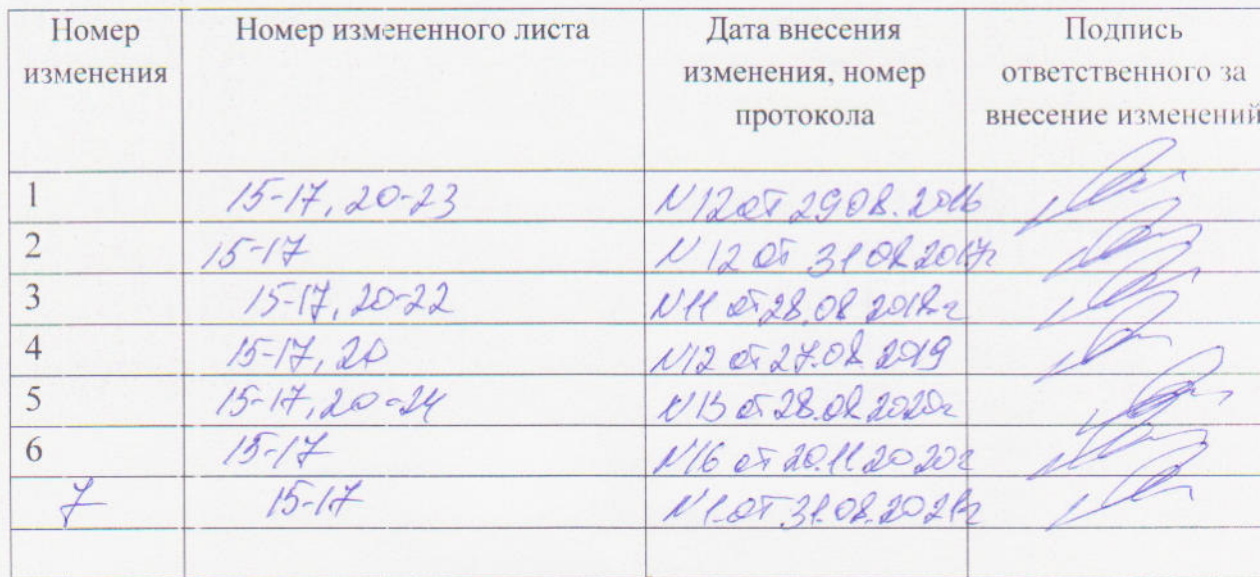 Номер Номер измененного листа Дата внесения Подпись
изменения изменения, номер ответственного за
протокола внесение изменений
1 15-17, 20-23 N12 от 29.08.2016
2 15-17 N 12 от 31.08.2017г
3 15-17, 20-22 N11 от 28.08.2018г
4 15-17, 20 N12 от 27.08.2019
5 15-17, 20-24 N13 от 28.08.2020г
6 15-17 N16 от 20.11.2020г
7 15-17 N1 от 31.08.2021г